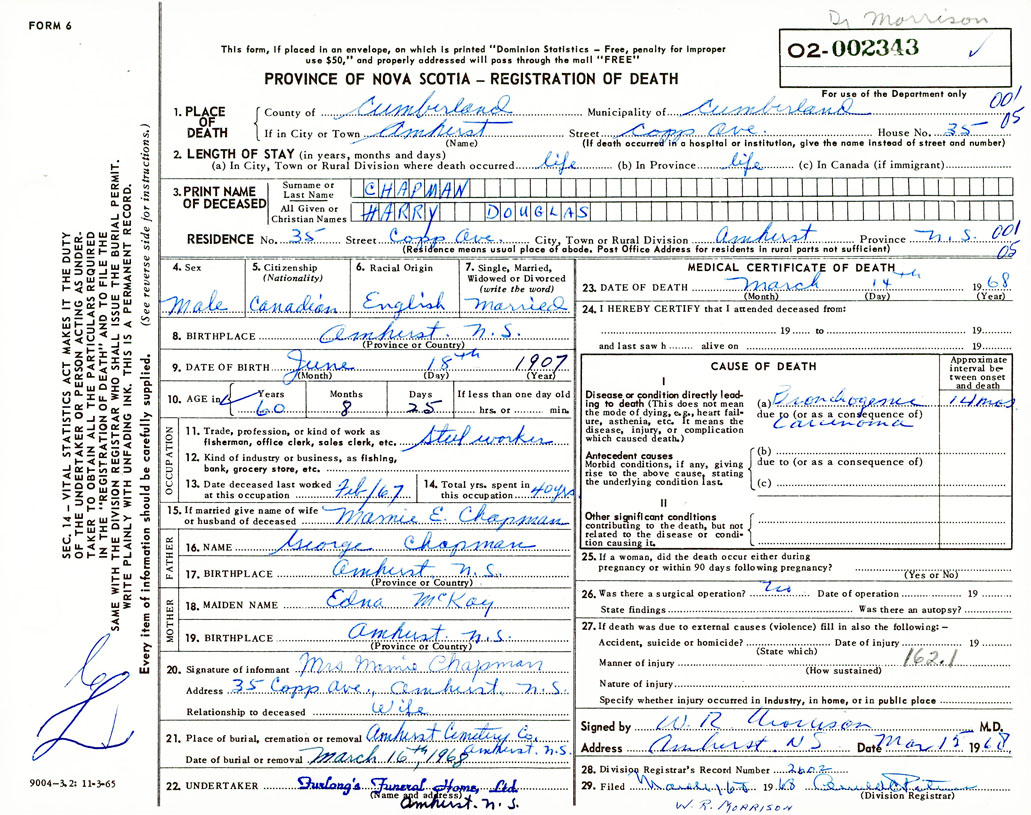 FORM 6
Dr Morrison
This form, if placed in an envelope, on which is printed "Dominion Statistics – Free, penalty for improper
use $50," and properly addressed will pass through the mail "FREE"
02-002343
PROVINCE OF NOVA SCOTIA – REGISTRATION OF DEATH
For use of the Department only
001
05
1. PLACE OF DEATH
County of Cumberland Municipality of Cumberland
If in City or Town Amherst Street Copp Ave. House No. 35
(Name) (If death occurred in a hospital or institution, give the name instead of street and number)
2. LENGTH OF STAY (in years, months and days)
(a) In City, Town or Rural Division where death occurred life (b) In Province life (c) In Canada (if immigrant)
3. PRINT NAME OF DECEASED
Surname or Last Name CHAPMAN
All Given or Christian Names HARRY DOUGLAS
RESIDENCE No. 35 Street Copp Ave. City, Town or Rural Division Amherst Province N.S. 001
(Residence means usual place of abode. Post Office Address for residents in rural parts not sufficient) 05
4. Sex
Male
5. Citizenship
(Nationality)
Canadian
6. Racial Origin
English
7. Single, Married,
Widowed or Divorced
(write the word)
Married
8. BIRTHPLACE Amherst. N.S.
(Province or Country)
9. DATE OF BIRTH June 18th 1907
(Month) (Day) (Year)
10. AGE in Years Months Days If less than one day old
60 8 25 hrs. or min.
OCCUPATION
11. Trade, profession, or kind of work as
fisherman, office clerk, sales clerk, etc. Steel worker
12. Kind of industry or business, as fishing,
bank, grocery store, etc.
13. Date deceased last worked
at this occupation Feb/67
14. Total yrs. spent in
this occupation 40yrs
15. If married give name of wife
or husband of deceased Mamie E. Chapman
FATHER
16. NAME George Chapman
17. BIRTHPLACE Amherst N.S.
(Province or Country)
MOTHER
18. MAIDEN NAME Edna McKay
19. BIRTHPLACE Amherst. N.S.
(Province or Country)
20. Signature of informant Mrs Mamie Chapman
Address 35 Copp Ave., Amherst, N.S.
Relationship to deceased Wife
21. Place of burial, cremation or removal Amherst Cemetery Co.
Amherst. N.S.
Date of burial or removal March 16th, 1968
22. UNDERTAKER Furlong's Funeral Home, Ltd.
(Name and address)
Amherst. N.S.
MEDICAL CERTIFICATE OF DEATH
23. DATE OF DEATH March 14th 1968
(Month) (Day) (Year)
24. I HEREBY CERTIFY that I attended deceased from:
19 to 19
and last saw h alive on 19
CAUSE OF DEATH
Approximate
interval be-
tween onset
and death
I
Disease or condition directly lead-
ing to death (This does not mean
the mode of dying, e.g., heart fail-
ure, asthenia, etc. It means the
disease, injury, or complication
which caused death.)
(a) Bronchogenic 14 mos
due to (or as a consequence of)
Carcinoma
Antecedent causes
Morbid conditions, if any, giving
rise to the above cause, stating
the underlying condition last.
(b)
due to (or as a consequence of)
(c)
II
Other significant conditions
contributing to the death, but not
related to the disease or condi-
tion causing it.
25. If a woman, did the death occur either during
pregnancy or within 90 days following pregnancy?
(Yes or No)
26. Was there a surgical operation? No Date of operation 19
State findings Was there an autopsy?
27. If death was due to external causes (violence) fill in also the following: –
Accident, suicide or homicide? Date of injury 19
(State which)
Manner of injury 162.1
(How sustained)
Nature of injury
Specify whether injury occurred in industry, in home, or in public place
Signed by W. R. Morrison M.D.
Address Amherst. NS Date Mar 15 1968
28. Division Registrar's Record Number 2602
29. Filed March 1968
(Division Registrar)
W. R. MORRISON
SEC. 14 – VITAL STATISTICS ACT MAKES IT THE DUTY
OF THE UNDERTAKER OR PERSON ACTING AS UNDER-
TAKER TO OBTAIN ALL THE PARTICULARS REQUIRED
IN THE "REGISTRATION OF DEATH" AND TO FILE THE
SAME WITH THE DIVISION REGISTRAR WHO SHALL ISSUE THE BURIAL PERMIT.
WRITE PLAINLY WITH UNFADING INK. THIS IS A PERMANENT RECORD.
Every item of information should be carefully supplied. (See reverse side for instructions.)
9004-3.2: 11-3-65